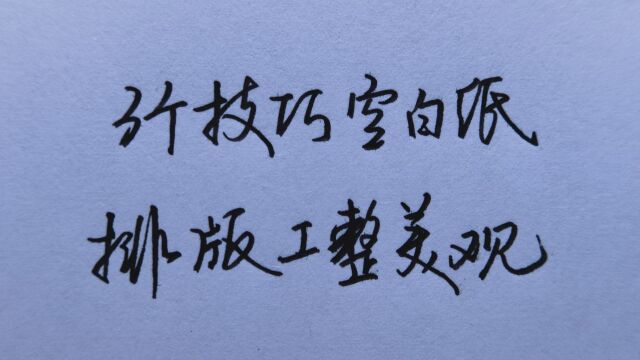 3个技巧空白纸
排版工整美观